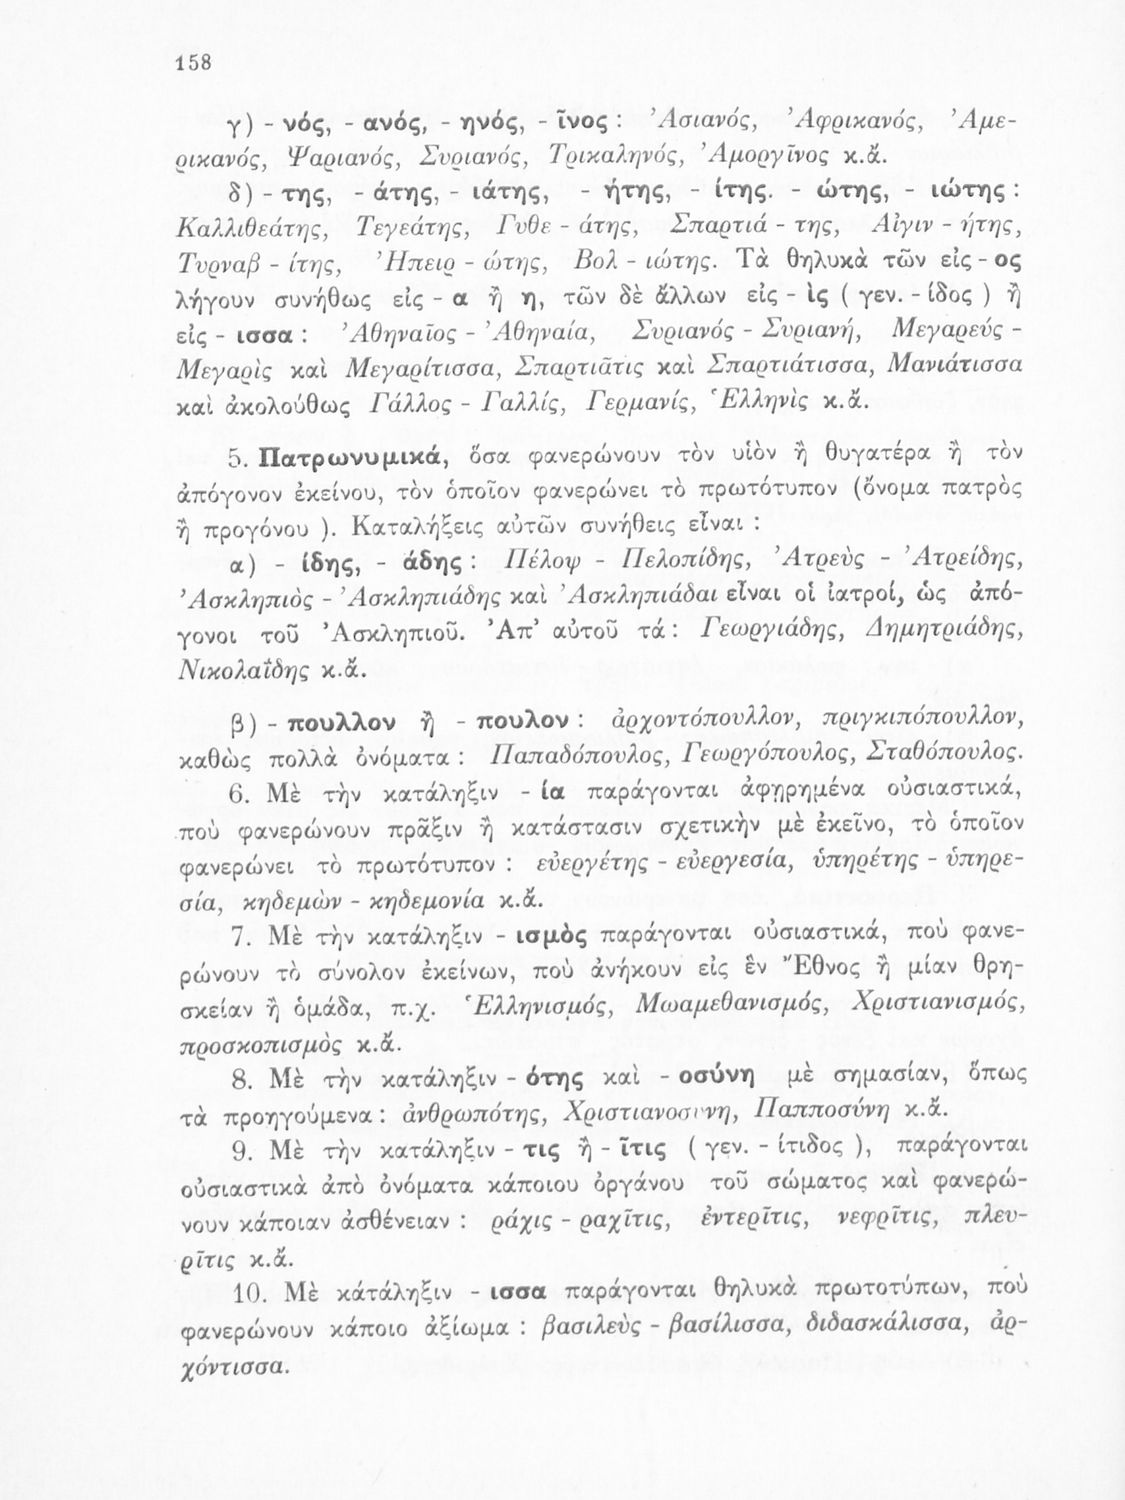 158
γ) - νός, - ανός, - ηνός, - ῖνος : Ἀσιανός, Ἀφρικανός, Ἀμε-
ρικανός, Ψαριανός, Συριανός, Τρικαληνός, Ἀμοργῖνος κ.ἄ.
δ) - της, - άτης, - ιάτης, - ήτης, - ίτης. - ώτης, - ιώτης :
Καλλιθεάτης, Τεγεάτης, Γυθε - άτης, Σπαρτιά - της, Αἰγιν - ήτης,
Τυρναβ - ίτης, Ἠπειρ - ώτης, Βολ - ιώτης. Τὰ θηλυκὰ τῶν εἰς - ος
λήγουν συνήθως εἰς - α ἢ η, τῶν δὲ ἄλλων εἰς - ὶς ( γεν. - ίδος ) ἢ
εἰς - ισσα : Ἀθηναῖος - Ἀθηναία, Συριανός - Συριανή, Μεγαρεύς -
Μεγαρὶς καὶ Μεγαρίτισσα, Σπαρτιᾶτις καὶ Σπαρτιάτισσα, Μανιάτισσα
καὶ ἀκολούθως Γάλλος - Γαλλίς, Γερμανίς, Ἑλληνὶς κ.ἄ.
5. Πατρωνυμικά, ὅσα φανερώνουν τὸν υἱὸν ἢ θυγατέρα ἢ τὸν
ἀπόγονον ἐκείνου, τὸν ὁποῖον φανερώνει τὸ πρωτότυπον (ὄνομα πατρὸς
ἢ προγόνου ). Καταλήξεις αὐτῶν συνήθεις εἶναι :
α) - ίδης, - άδης : Πέλοψ - Πελοπίδης, Ἀτρεὺς - Ἀτρείδης,
Ἀσκληπιὸς - Ἀσκληπιάδης καὶ Ἀσκληπιάδαι εἶναι οἱ ἰατροί, ὡς ἀπό-
γονοι τοῦ Ἀσκληπιοῦ. Ἀπ' αὐτοῦ τά : Γεωργιάδης, Δημητριάδης,
Νικολαΐδης κ.ἄ.
β) - πουλλον ἢ - πουλον : ἀρχοντόπουλλον, πριγκιπόπουλλον,
καθὼς πολλὰ ὀνόματα : Παπαδόπουλος, Γεωργόπουλος, Σταθόπουλος.
6. Μὲ τὴν κατάληξιν - ία παράγονται ἀφῃρημένα οὐσιαστικά,
ποὺ φανερώνουν πρᾶξιν ἢ κατάστασιν σχετικὴν μὲ ἐκεῖνο, τὸ ὁποῖον
φανερώνει τὸ πρωτότυπον : εὐεργέτης - εὐεργεσία, ὑπηρέτης - ὑπηρε-
σία, κηδεμὼν - κηδεμονία κ.ἄ.
7. Μὲ τὴν κατάληξιν - ισμὸς παράγονται οὐσιαστικά, ποὺ φανε-
ρώνουν τὸ σύνολον ἐκείνων, ποὺ ἀνήκουν εἰς ἓν Ἔθνος ἢ μίαν θρη-
σκείαν ἢ ὁμάδα, π.χ. Ἑλληνισμός, Μωαμεθανισμός, Χριστιανισμός,
προσκοπισμὸς κ.ἄ.
8. Μὲ τὴν κατάληξιν - ότης καὶ - οσύνη μὲ σημασίαν, ὅπως
τὰ προηγούμενα : ἀνθρωπότης, Χριστιανοσύνη, Παπποσύνη κ.ἄ.
9. Μὲ τὴν κατάληξιν - τις ἢ - ῖτις ( γεν. - ίτιδος ), παράγονται
οὐσιαστικὰ ἀπὸ ὀνόματα κάποιου ὀργάνου τοῦ σώματος καὶ φανερώ-
νουν κάποιαν ἀσθένειαν : ράχις - ραχῖτις, ἐντερῖτις, νεφρῖτις, πλευ-
ρῖτις κ.ἄ.
10. Μὲ κάτάληξιν - ισσα παράγονται θηλυκὰ πρωτοτύπων, ποὺ
φανερώνουν κάποιο ἀξίωμα : βασιλεὺς - βασίλισσα, διδασκάλισσα, ἀρ-
χόντισσα.